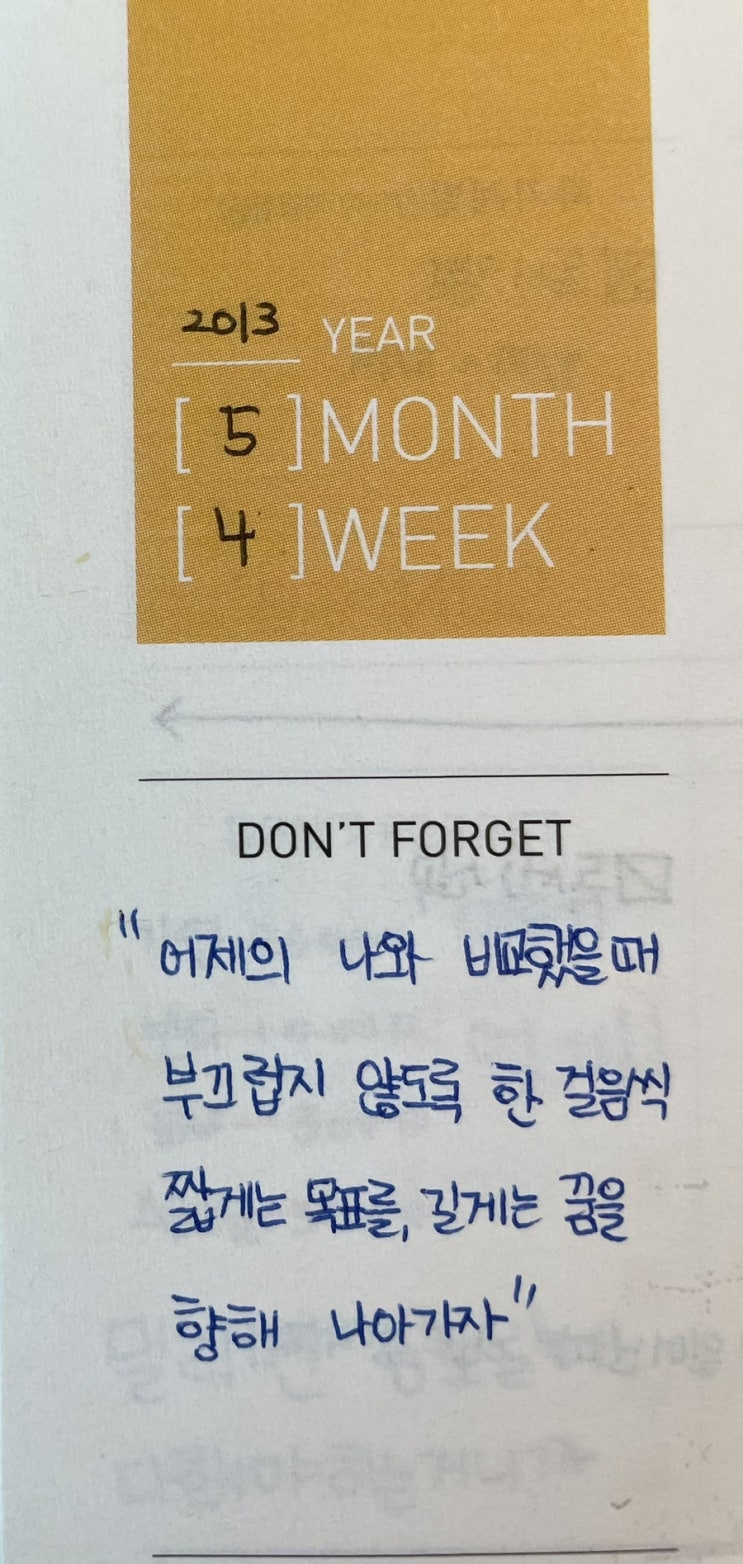 2013 YEAR
[ 5 ] MONTH
[ 4 ] WEEK
DON'T FORGET
"어제의 나와 비교했을때
부끄럽지 않도록 한 걸음씩
짧게는 목표를, 길게는 꿈을
향해 나아가자"